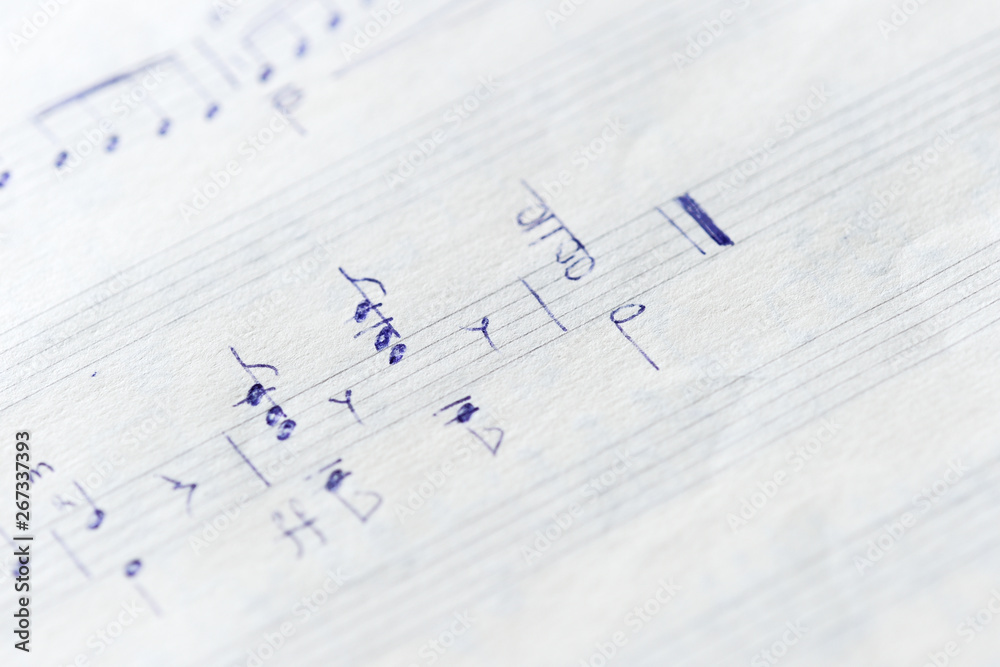 ff
Adobe Stock | #267337393